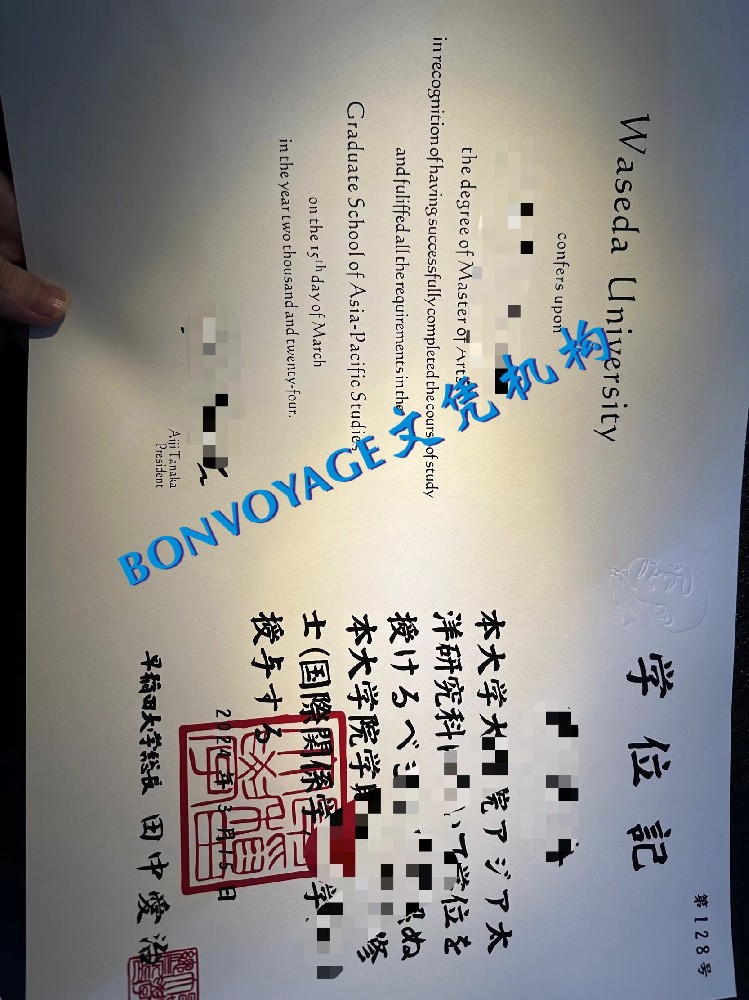 Waseda University
confers upon
the degree of Master of Arts
in recognition of having successfully completed the course of study
and fuliffed all the requirements in the
Graduate School of Asia-Pacific Studies
on the 15th day of March
in the year two thousand and twenty-four.
Aiji Tanaka
President
第128号
学位記
本大学大 院アジア太
洋研究科 いて学位を
授けるべ
本大学院学 修
士(国際関係学 学
授与する
2024年3月15日
早稲田大学総長 田中愛治
BONVOYAGE文凭机构